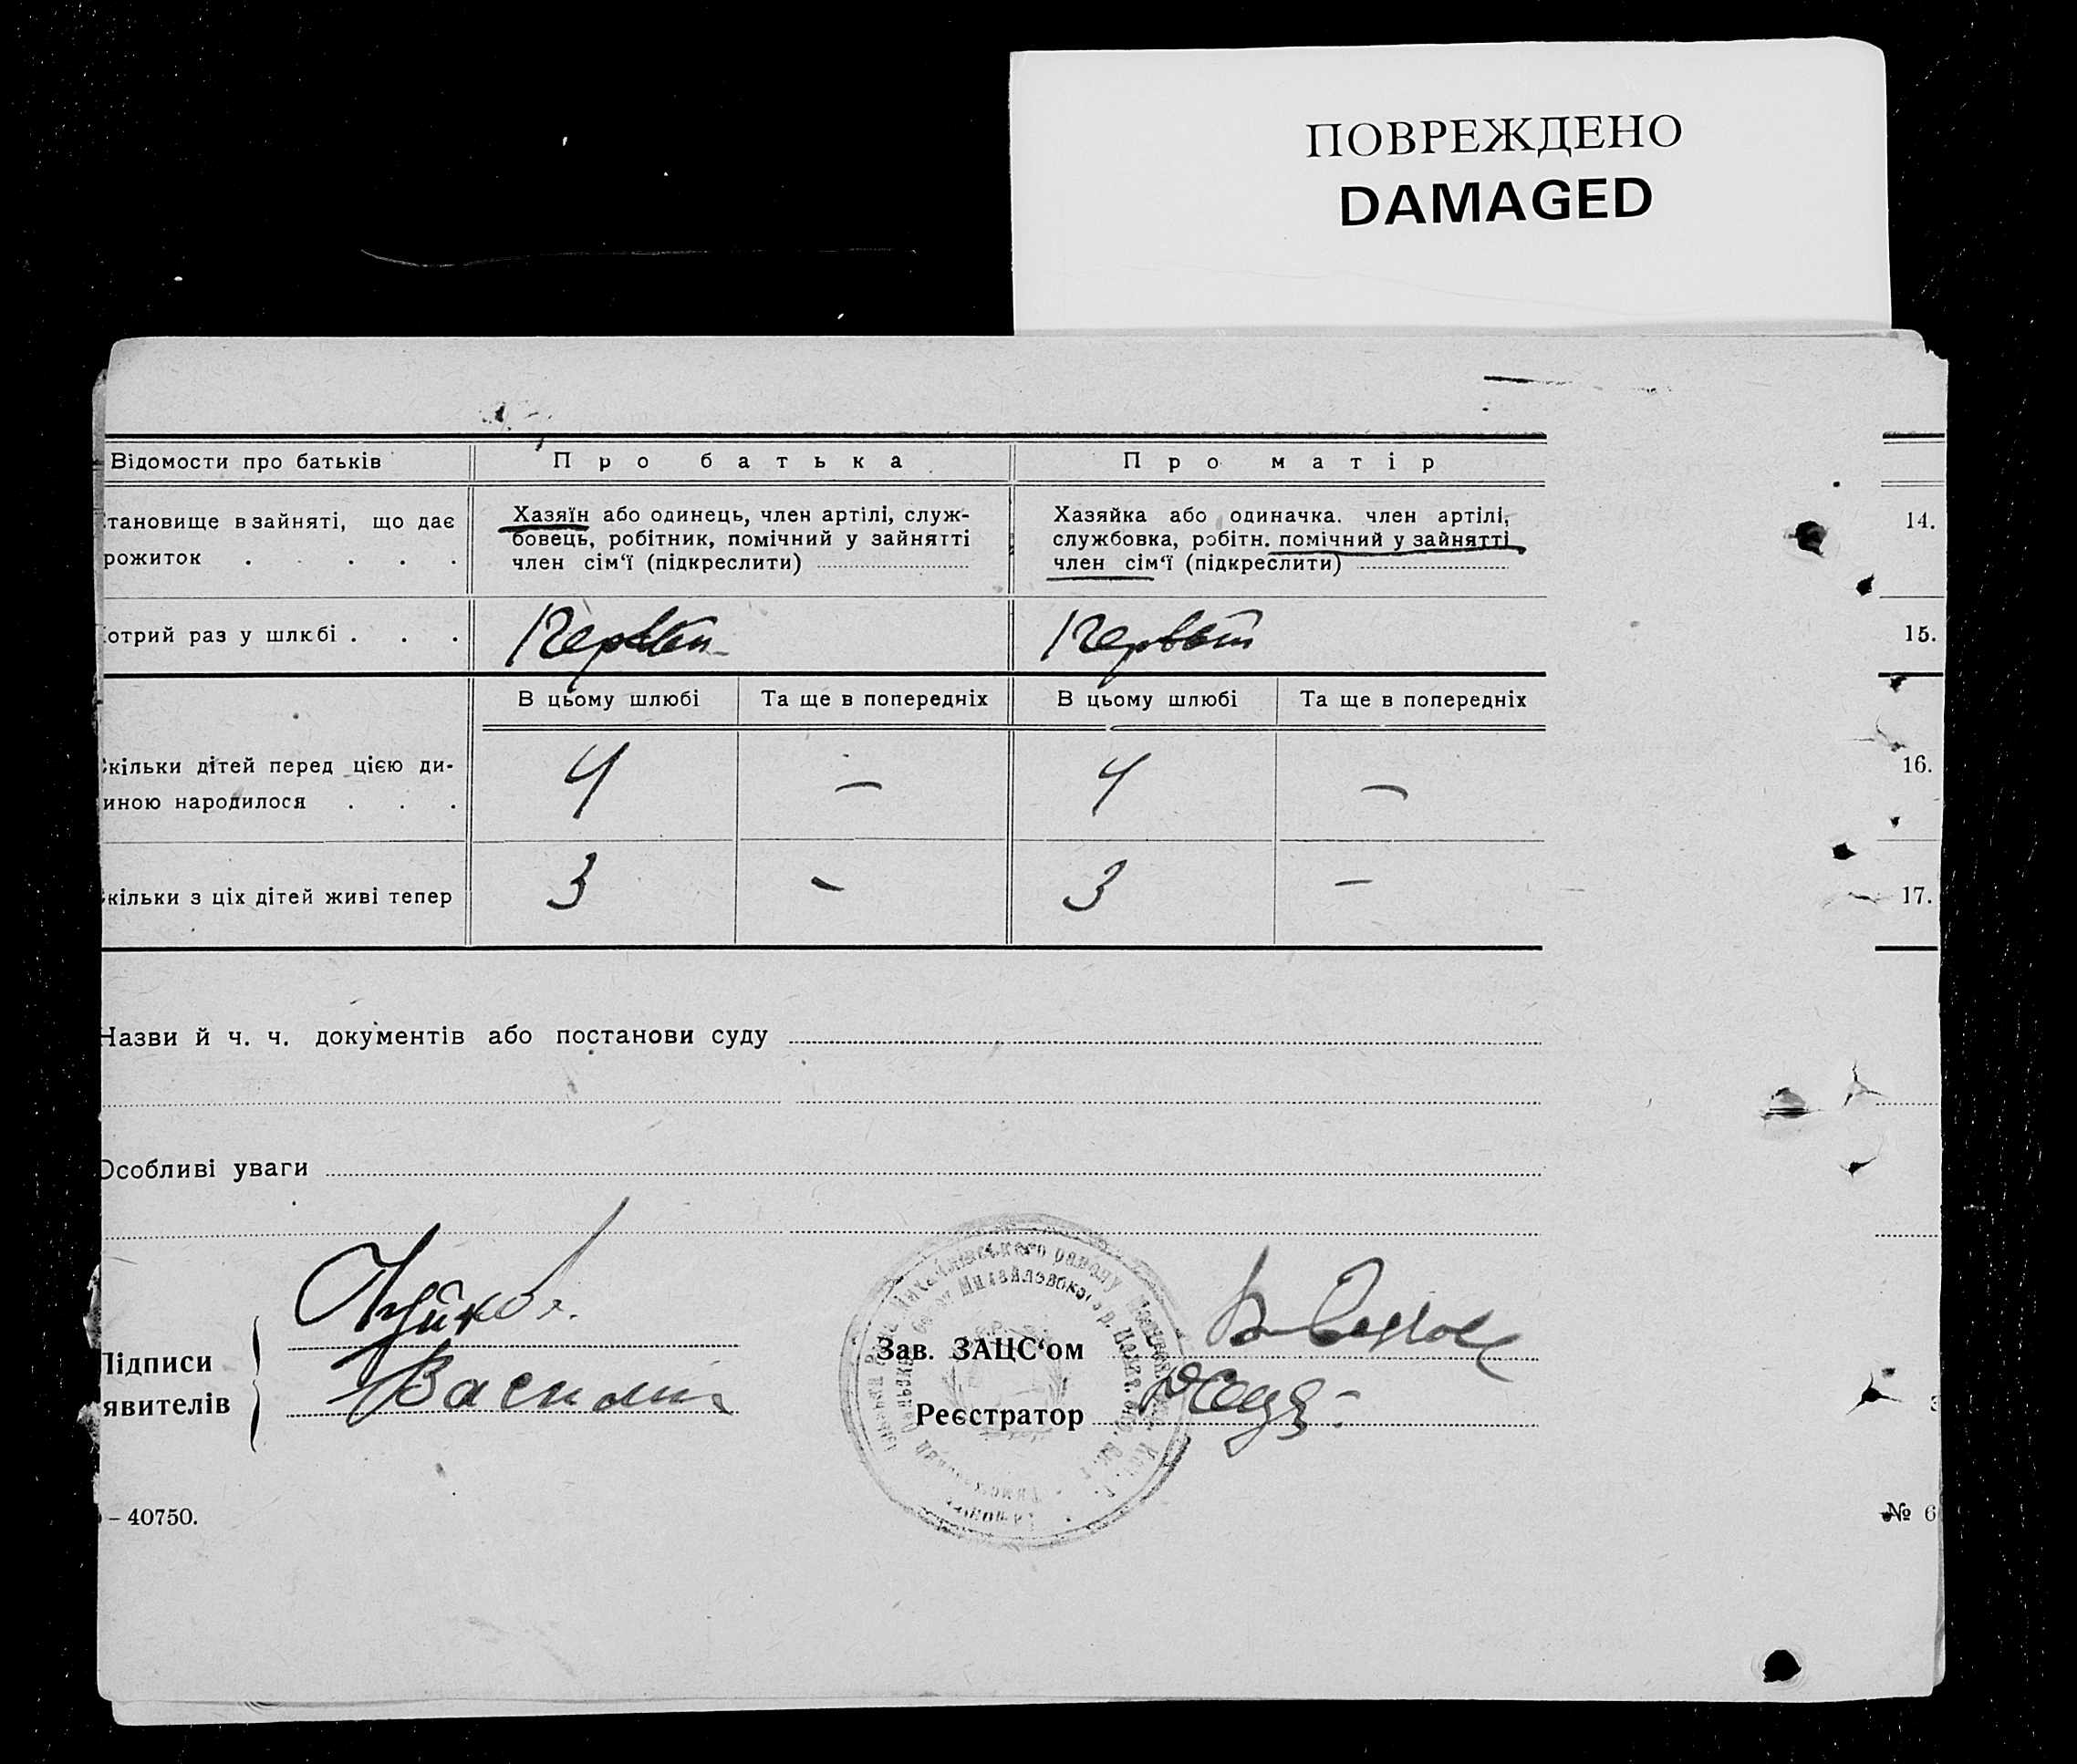 ПОВРЕЖДЕНО
DAMAGED
Відомости про батьків
Про батька
Про матір
тановище в зайняті, що дає
рожиток . . . . .
Хазяїн або одинець, член артілі, служ-
бовець, робітник, помічний у зайнятті
член сім‘ї (підкреслити)
Хазяйка або одиначка. член артілі,
службовка, робітн. помічний у зайнятті
член сім‘ї (підкреслити)
14.
отрий раз у шлюбі . . .
Первый
Первый
15.
В цьому шлюбі
Та ще в попередніх
В цьому шлюбі
Та ще в попередніх
кільки дітей перед цією ди-
иною народилося . . .
4
—
4
—
16.
кільки з ціх дітей живі тепер
3
-
3
—
17.
Назви й ч. ч. документів або постанови суду
Особливі уваги
Підписи
явителів
Василий
Зав. ЗАЦС‘ом
Реєстратор
– 40750.
№ 6